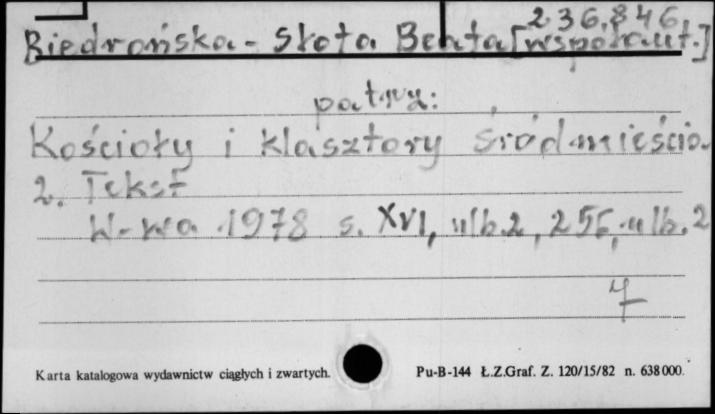 236.846
Biedrońska-Słota Beata [współaut.]
patrz:
Kościoły i klasztory śródmieścia.
2. Tekst
W-wa 1978 s. XVI, ulb.2, 256, ulb.2
4
Karta katalogowa wydawnictw ciągłych i zwartych.
Pu-B-144 Ł.Z.Graf. Z. 120/15/82 n. 638000.